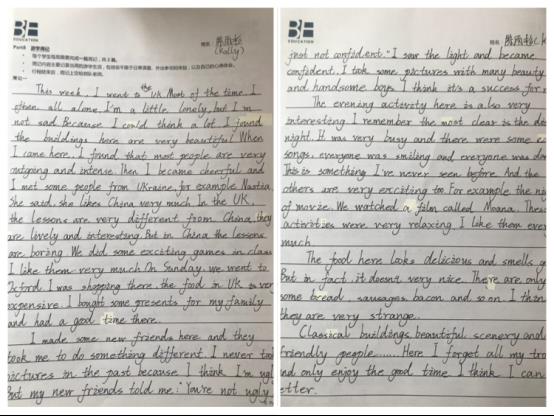 BE
EDUCATION
姓名：陈雨杉
(Kally)
Part8 游学周记
This week, I went to the UK. Most of the time. I
often all alone. I'm a little lonely, but I'm
not sad. Because I could think a lot. I found
the buildings here are very beautiful. When
I came here, I found that most people are very
outgoing and intense. Then I became cheerful and
I met some people from UKraine, for example Nastia.
She said, she likes China very much. In the UK,
the lessons are very different from China, they
are lively and interesting. But in China the lessons
are boring. We did some exciting games in class
I like them very much. On Sunday, we went to
Oxford. I was shopping there. the food in UK is ver
expensive. I bought some presents for my family
and had a good time there.
I made some new friends here and they
took me to do something different. I never too
pictures in the past because I think I'm ugl
But my new friends told me: "You're not ugly
BE
EDUCATION
姓名：陈雨杉
just not confident." I saw the light and became
confident. I took some pictures with many beauty
and handsome boys. I think it's a success for
The evening activity here is also very
interesting. I remember the most clear is the
night. It was very busy and there were some
songs, everyone was smiling and everyone was
This is something I've never seen before. And the
others are very exciting too. For example the nig
of movie. We watched a film called Moana. These
activities were very relaxing. I like them ever
much.
The food here looks delicious and smells g
But in fact, it doesn't very nice. There are only
some bread, sausages, bacon and so on. I thin
they are very strange.
Classical buildings, beautiful scenery and
friendly people...... Here I forget all my tro
and only enjoy the good time. I think I can
better.